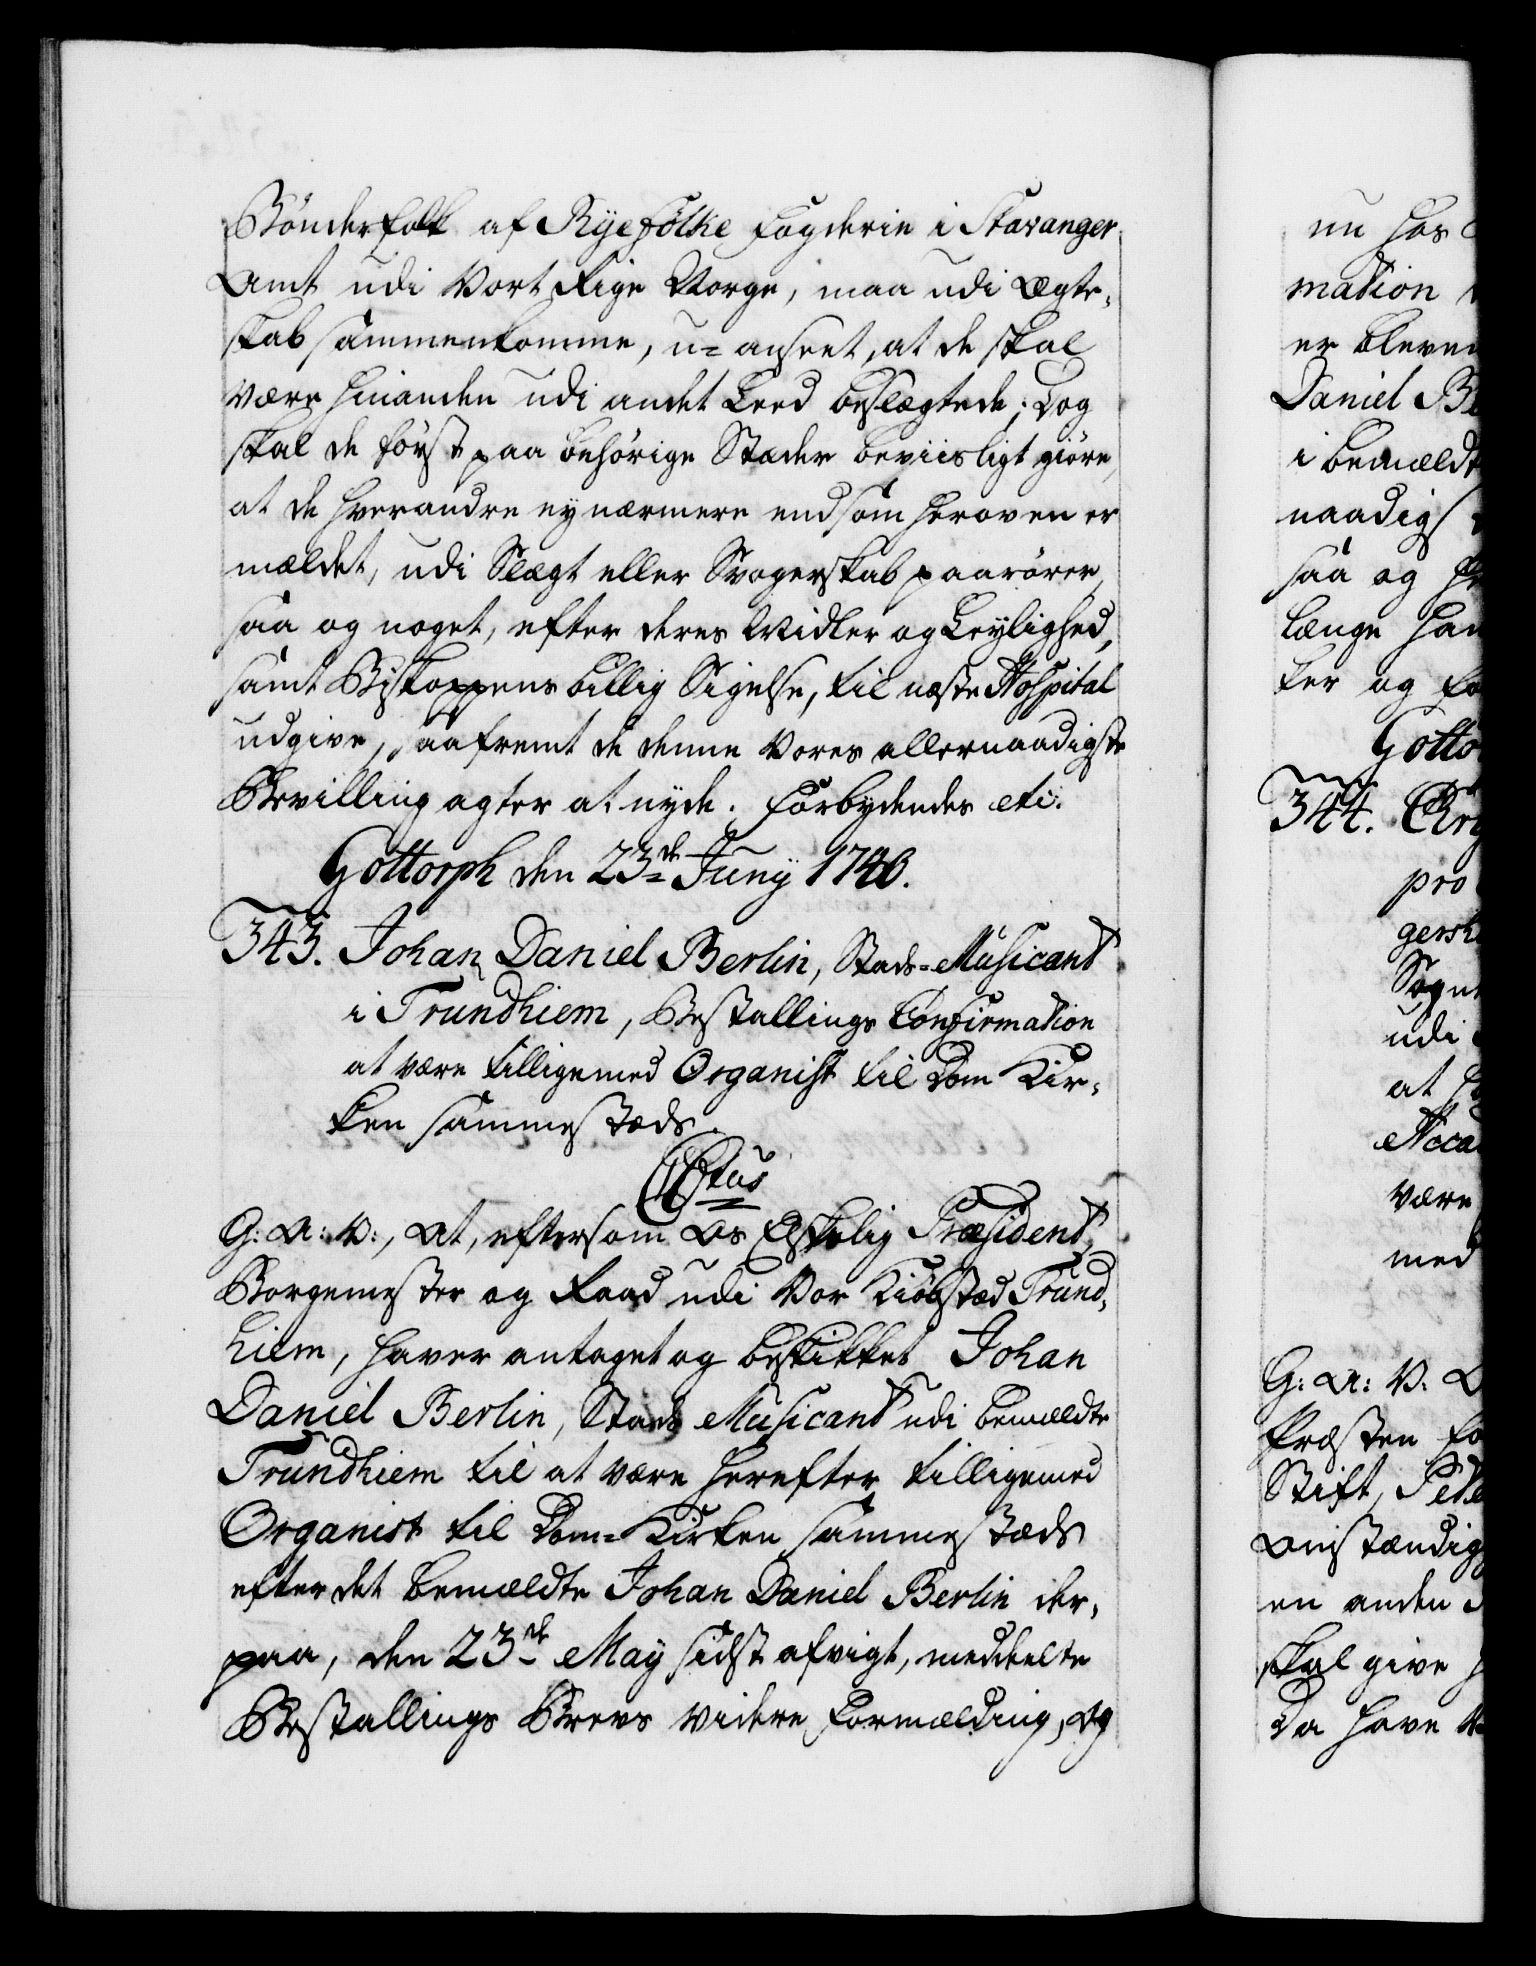 Bønderfolk af Ryefølke Fogderie i Stavanger
Amt udi Vort Rige Norge, maa udi Ægte-
skab sammenkomme, u-anseet, at de skal
være hinanden udi andet Leed beslægtede; Dog
skal de først paa behørige Stæder beviisligt giøre,
at de hverandre ey nærmere end som heroven er
meldet, udi Slægt eller Svogerskab paarører,
saa og noget, efter deres Midler og Leylighed,
samt Biskoppens billig Sigelse, til næste Hospital
udgive, saafremt de denne Vores allernaadigste
Bevilling agter at nyde. Forbydendes etc:
Gottorph den 23de Juny 1740.
343. Johan Daniel Berlin, Stads-Musicant
i Trundhiem, Bestallings Confirmation
at være tilligemed Organist til Dom Kir-
ken sammestæds.
C6tus
G: A: V:, At, eftersom Os Elskelig Præsident,
Borgemester og Raad udi Vor Kiøbstæd Trund-
hiem, haver antaget og beskikket Johan
Daniel Berlin, Stads Musicant udi bemældte
Trundhiem til at være herefter tilligemed
Organist til Dom-Kirken sammestæds
efter det bemældte Johan Daniel Berlin der-
paa, den 23de May sidst afvigt, meddeelte
Bestallings Brevs videre Formælding, Og
nu hos
mation
er bleven
Daniel Be
i bemældt
naadigs
saa og
længe han
ker og fo
Gotto
344.
pro
gersk
Sogn
udi
at
være
med
G: A: V:
Præsten fo
Stift, Pede
omstændig
en anden
skal give
Da have V